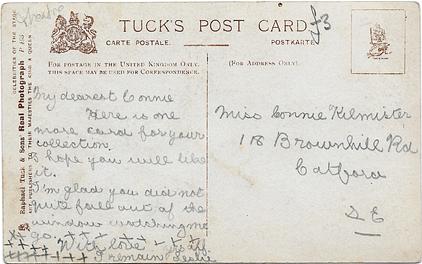 Theatre
£3
TUCK'S POST CARD
CARTE POSTALE.
POSTKARTE.
FOR POSTAGE IN THE UNITED KINGDOM ONLY,
THIS SPACE MAY BE USED FOR CORRESPONDENCE.
(FOR ADDRESS ONLY.)
CELEBRITIES OF THE STAGE
Raphael Tuck & Sons' Real Photograph
ART PUBLISHERS TO THEIR MAJESTIES THE KING & QUEEN
My dearest Connie
Here is one
more card for your
collection.
I hope you will like
it.
I'm glad you did not
quite fall out of the
window watching me
go.
With love
I remain Leslie
Miss Connie Kilmister
118 Brownhill Rd
Catford
S E